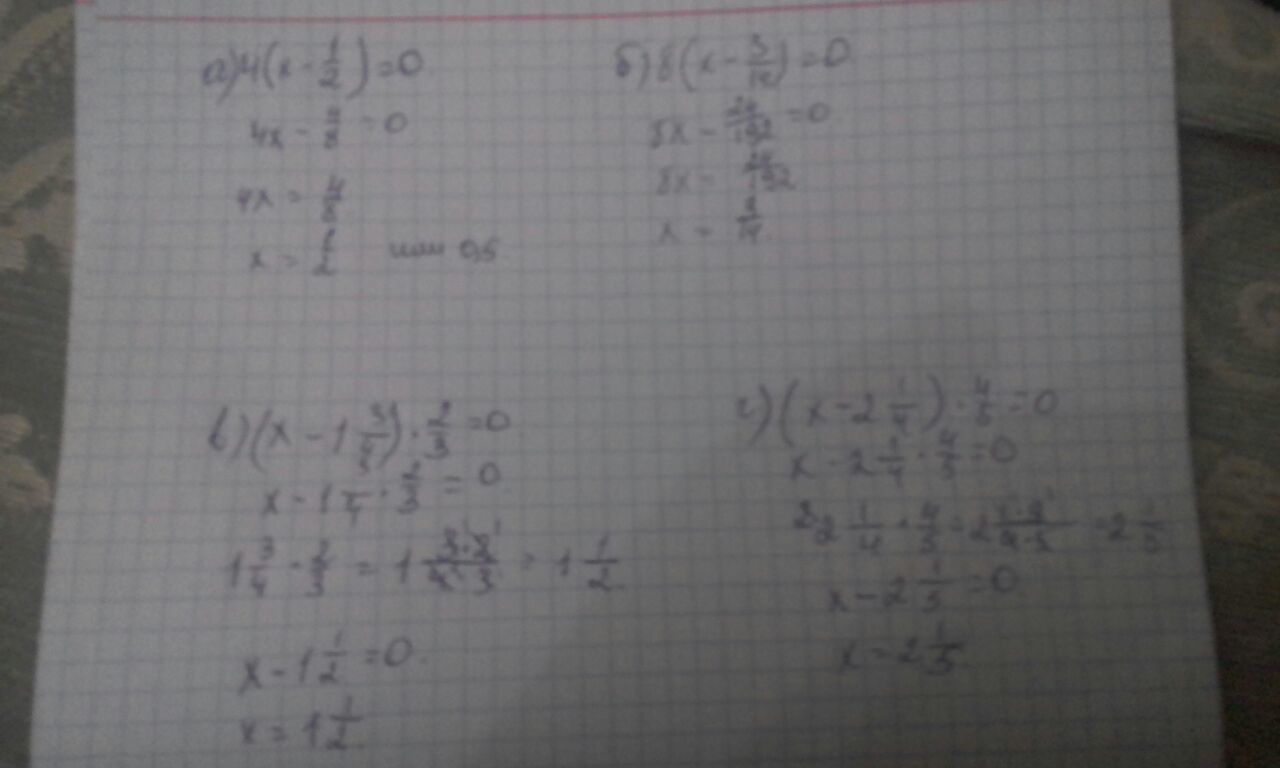 а) 4(x - 1/2) = 0
4x - 4/8 = 0
4x = 4/8
x = 1/2 или 0,5
б) 8(x - 3/14) = 0
8x - 24/192 = 0
8x = 24/192
в) (x - 1 3/4) · 2/3 = 0
x - 1 3/4 · 2/3 = 0
1 3/4 · 2/3 = 1 3·2/4·3 = 1 1/2
x - 1 1/2 = 0
x = 1 1/2
г) (x - 2 1/4) · 4/5 = 0
x - 2 1/4 · 4/5 = 0
2 1/4 · 4/5 = 2 1·4/4·5 = 2 1/5
x - 2 1/5 = 0
x = 2 1/5